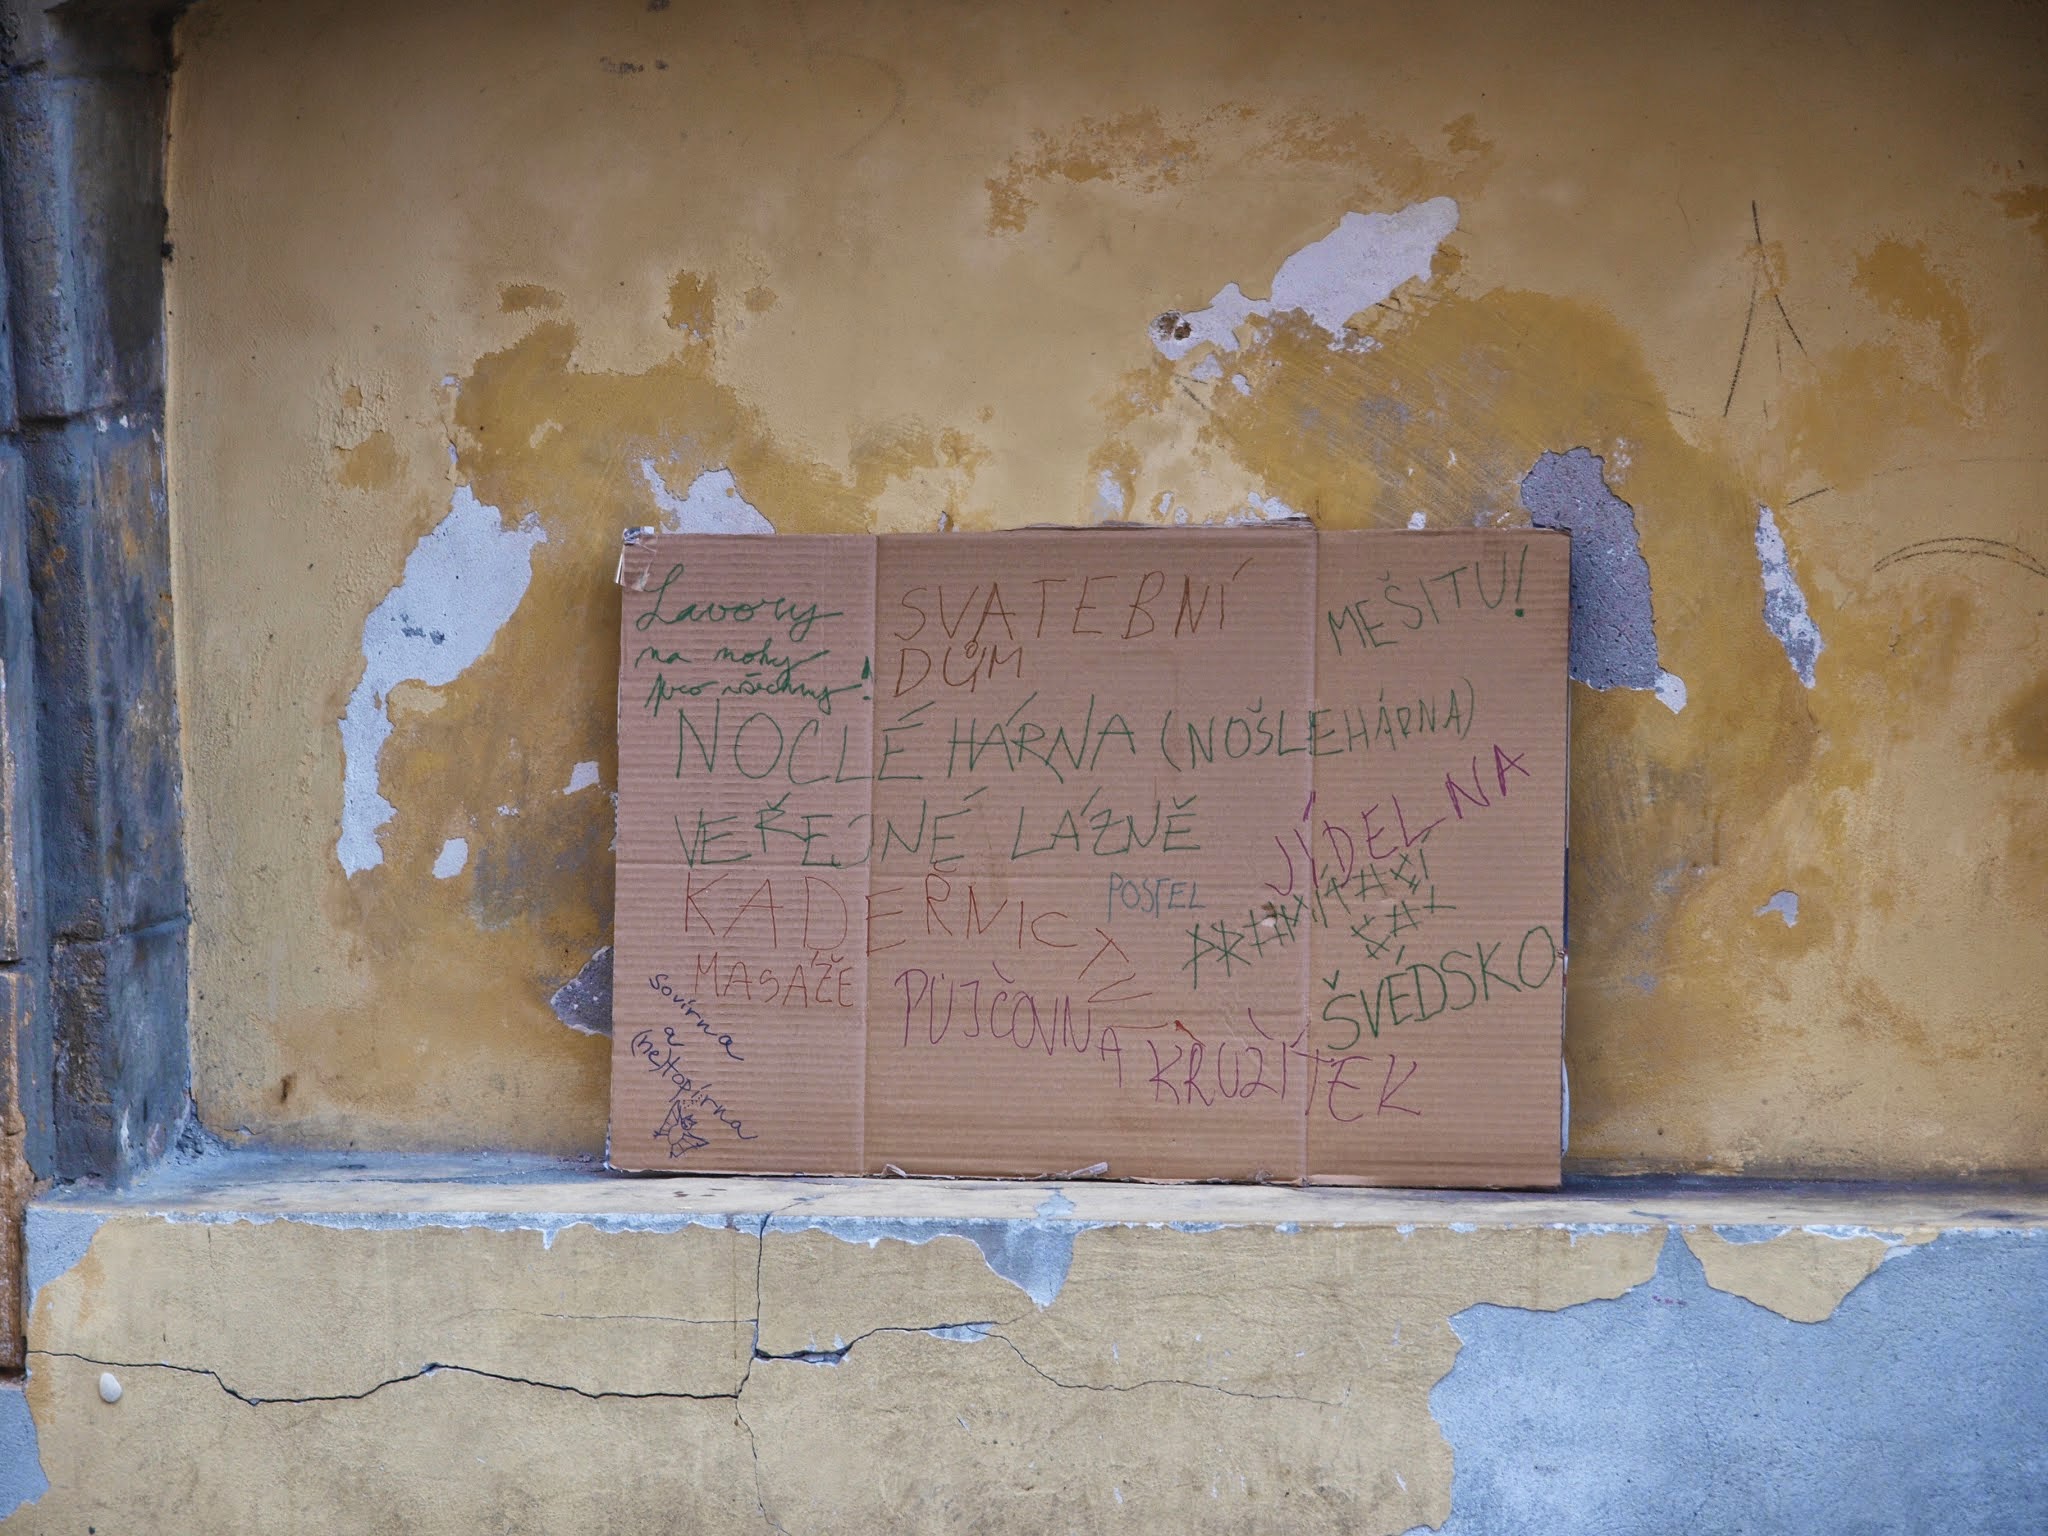 Lavory
na nohy
pro všechny!
SVATEBNÍ
DŮM
MEŠITU!
NOCLÉHÁRNA (NOŠLEHÁRNA)
VEŘEJNÉ LÁZNĚ
JÍDELNA
KADEŘNICTV
POSTEL
MASÁŽE
ŠVÉDSKO
PŮJČOVNA
KRUŽÍTEK
Sovírna
a
(ne)topírna